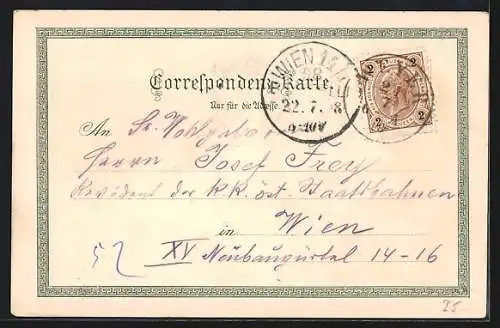 Correspondenz-Karte.
Nur für die Adresse.
WIEN
22.7.
2 2
2 2
An Sr. Wohlgeboren
Herrn Josef Frey
Revident der k.k. öst. Staatsbahnen
in Wien
52 XV Neubaugürtel 14-16
25.-